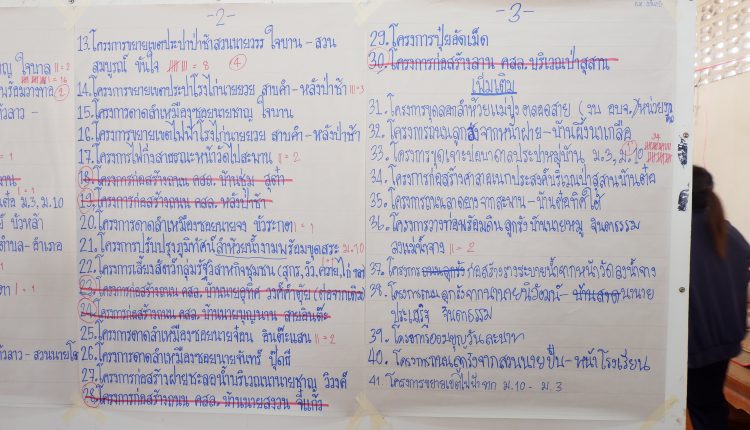 -2-
13.โครงการขยายเขตประปาป่าช้าสวนนายวรร ใจบาน - สวน
สมบูรณ์ ขันใจ = 8 4
14.โครงการขยายเขตประปาโรงไก่นายอวย สาบคำ - หลังป่าช้า
15.โครงการดาดลำเหมืองซอยนายชาญ ใจบาน
16.โครงการขยายเขตไฟฟ้าโรงไก่นายอวย สาบคำ - หลังป่าช้า
17.โครงการไฟกิ่งสาธารณะหน้าวัดไปสะพาน = 2
18.โครงการก่อสร้างถนน คสล. บ้านชุม
19.โครงการก่อสร้างถนน คสล. หลังป่าช้า
20.โครงการดาดลำเหมืองซอยนายจง บัวระกตา = 1
21.โครงการปรับปรุงภูมิทัศน์ลำห้วยน้ำงามพร้อมขุดสระ ม.10
22.โครงการเลี้ยงสัตว์กลุ่มรัฐวิสาหกิจชุมชน (สุกร,วัว,ควาย,ไก่
23.โครงการก่อสร้างถนน คสล. บ้านนายอุทิศ วงศ์คำตุ้ย (ต่อจากเดิม)
24.โครงการก่อสร้างถนน คสล. บ้านนายบุญนาน สายอินต๊ะ
25.โครงการดาดลำเหมืองซอยนายจ๋อน อินต๊ะแสน = 2
26.โครงการดาดลำเหมืองซอยนายจันทร์ ปู่ดี
27.โครงการก่อสร้างฝายชะลอน้ำบริเวณนานายชาญ วิวงค์
28.โครงการก่อสร้างถนน คสล. บ้านนายสงวน จี๋แก้ว
-3-
29.โครงการปุ๋ยอัดเม็ด
30.โครงการก่อสร้างลาน คสล. บริเวณป่าสุสาน
เพิ่มเติม
31.โครงการขุดลอกลำห้วยแม่ปูงตลอดสาย (งบ อบจ./หน่วย
32.โครงการถนนลูกรังจากหน้าฝาย - บ้านผึ้งนาเกลือ
33.โครงการขุดเจาะบ่อบาดาลประปาหมู่บ้าน ม.3, ม.10
34.โครงการก่อสร้างศาลาอเนกประสงค์บริเวณป่าสุสานบ้านต๋อ
35.โครงการถนนลาดยางจากสะพาน - บ้านต๋อใต้
36.โครงการวางท่อพร้อมดินลูกรังบ้านนายหมู จินตธรรม
= 2
37.โครงการก่อสร้างรางระบายน้ำจากหน้าวัดองน้ำจาง
38.โครงการถนนลูกรังจากนานายนิวัฒน์ - นานาย
ประเสริฐ จินตธรรม
39.โครงการ
40.โครงการถนนลูกรังจากสวนนายปั๋น - หน้าโรงเรียน
41.โครงการขยายเขตไฟฟ้าจาก ม.10 - ม.3